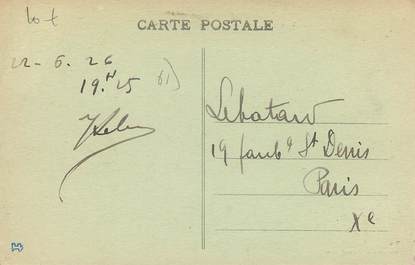 CARTE POSTALE
22-6.26
19.H25
61)
Lebatard
19 faubg St Denis
Paris
Xe